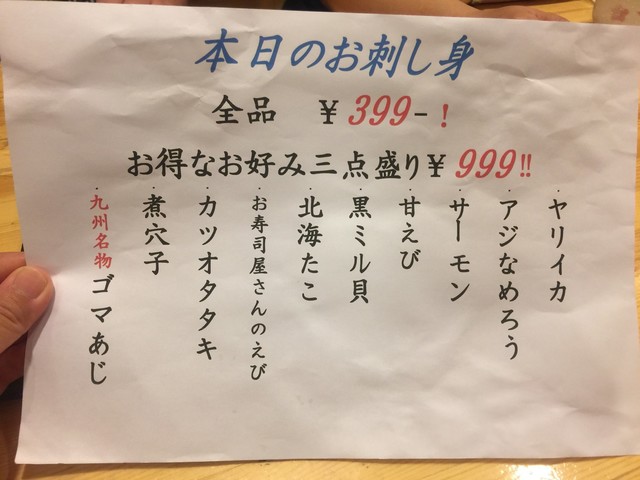 本日のお刺し身
全品 ¥399-!
お得なお好み三点盛り¥999!!
・ヤリイカ
・アジなめろう
・サーモン
・甘えび
・黒ミル貝
・北海たこ
・お寿司屋さんのえび
・カツオタタキ
・煮穴子
・九州名物ゴマあじ